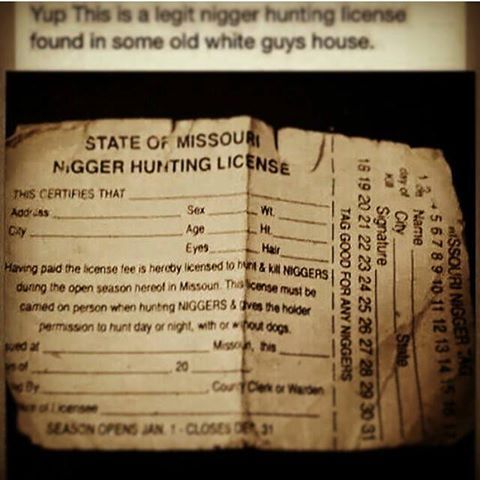 Yup This is a legit nigger hunting license
found in some old white guys house.
STATE OF MISSOURI
NIGGER HUNTING LICENSE
THIS CERTIFIES THAT
Address Sex Wt.
City Age Ht.
Eyes Hair
Having paid the license fee is hereby licensed to hunt & kill NIGGERS
during the open season hereof in Missouri. This license must be
carried on person when hunting NIGGERS & gives the holder
permission to hunt day or night, with or without dogs.
at Missouri, this
of 20
By County Clerk or Warden
of Licensee
SEASON OPENS JAN. 1 - CLOSES DEC. 31
MISSOURI NIGGER TAG
4 5 6 7 8 9 10 11 12 13 14 15 16 17
Name
City State
day of Kill
Signature
18 19 20 21 22 23 24 25 26 27 28 29 30 31
TAG GOOD FOR ANY NIGGERS